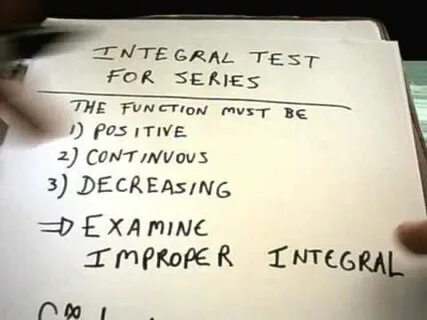 INTEGRAL TEST
FOR SERIES
THE FUNCTION MUST BE
1) POSITIVE
2) CONTINUOUS
3) DECREASING
⇒ EXAMINE
IMPROPER INTEGRAL